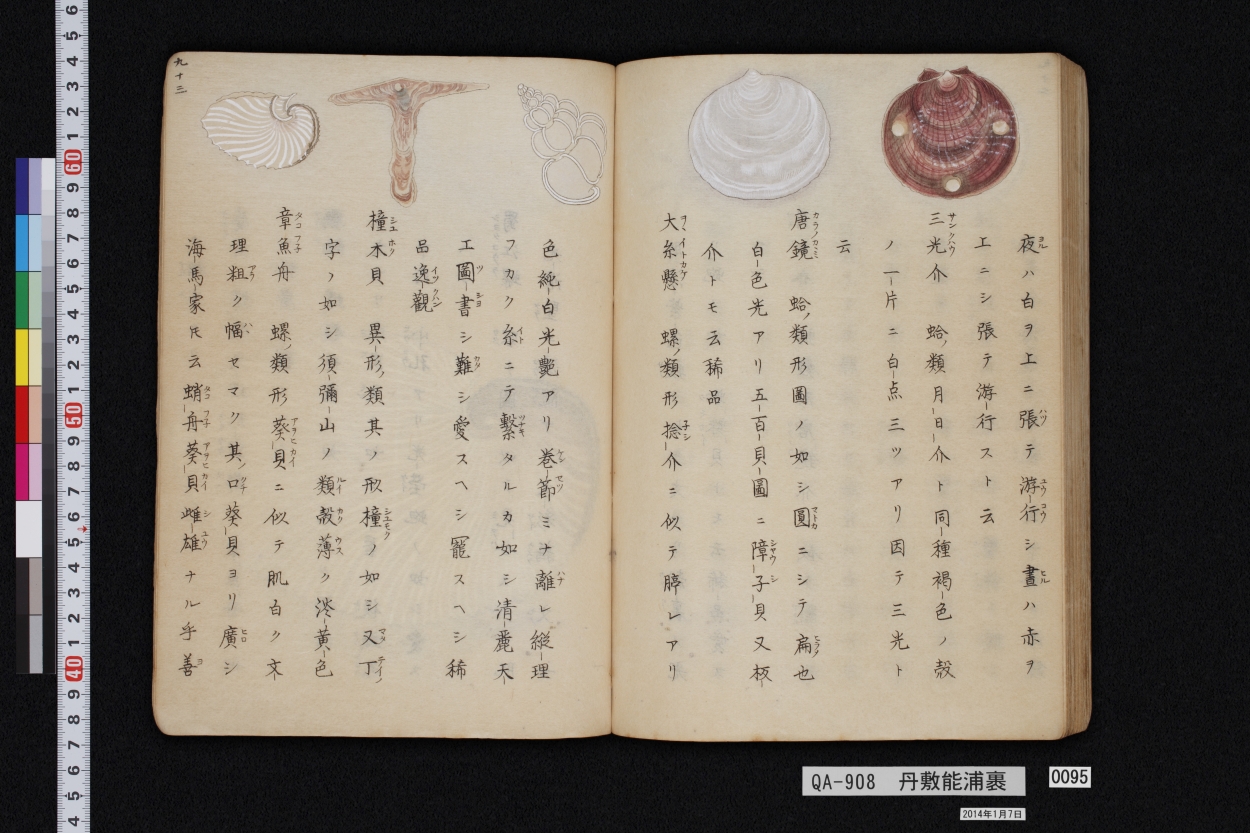 夜ハ白ヲ上ニ張テ游行シ晝ハ赤ヲ
上ニシ張テ游行スト云
三光介 蛤ノ類月日介ト同種褐色ノ殻
ノ一片ニ白点三ツアリ因テ三光ト
云
唐鏡 蛤ノ類形圖ノ如シ圓ニシテ扁也
白色光アリ五百貝圖ニ障子貝又板
介トモ云稀品
大糸懸 螺ノ類形捻介ニ似テ脺レアリ
色純白光艶アリ巻節ミナ離レ縦理
フカク糸ニテ繋タルカ如シ清麗天
工圖書シ難シ愛スヘシ寵スヘシ稀
品逸觀
橦木貝 異形ノ類其ノ形橦ノ如シ又丁
字ノ如シ須彌山ノ類殻薄ク淡黄色
章魚舟 螺ノ類形葵貝ニ似テ肌白ク文
理粗ク幅セマク其ノ口葵貝ヨリ廣シ
海馬家トモ云蛸舟葵貝雌雄ナル乎善
九十二
QA-908 丹敷能浦裹
0095
2014年1月7日